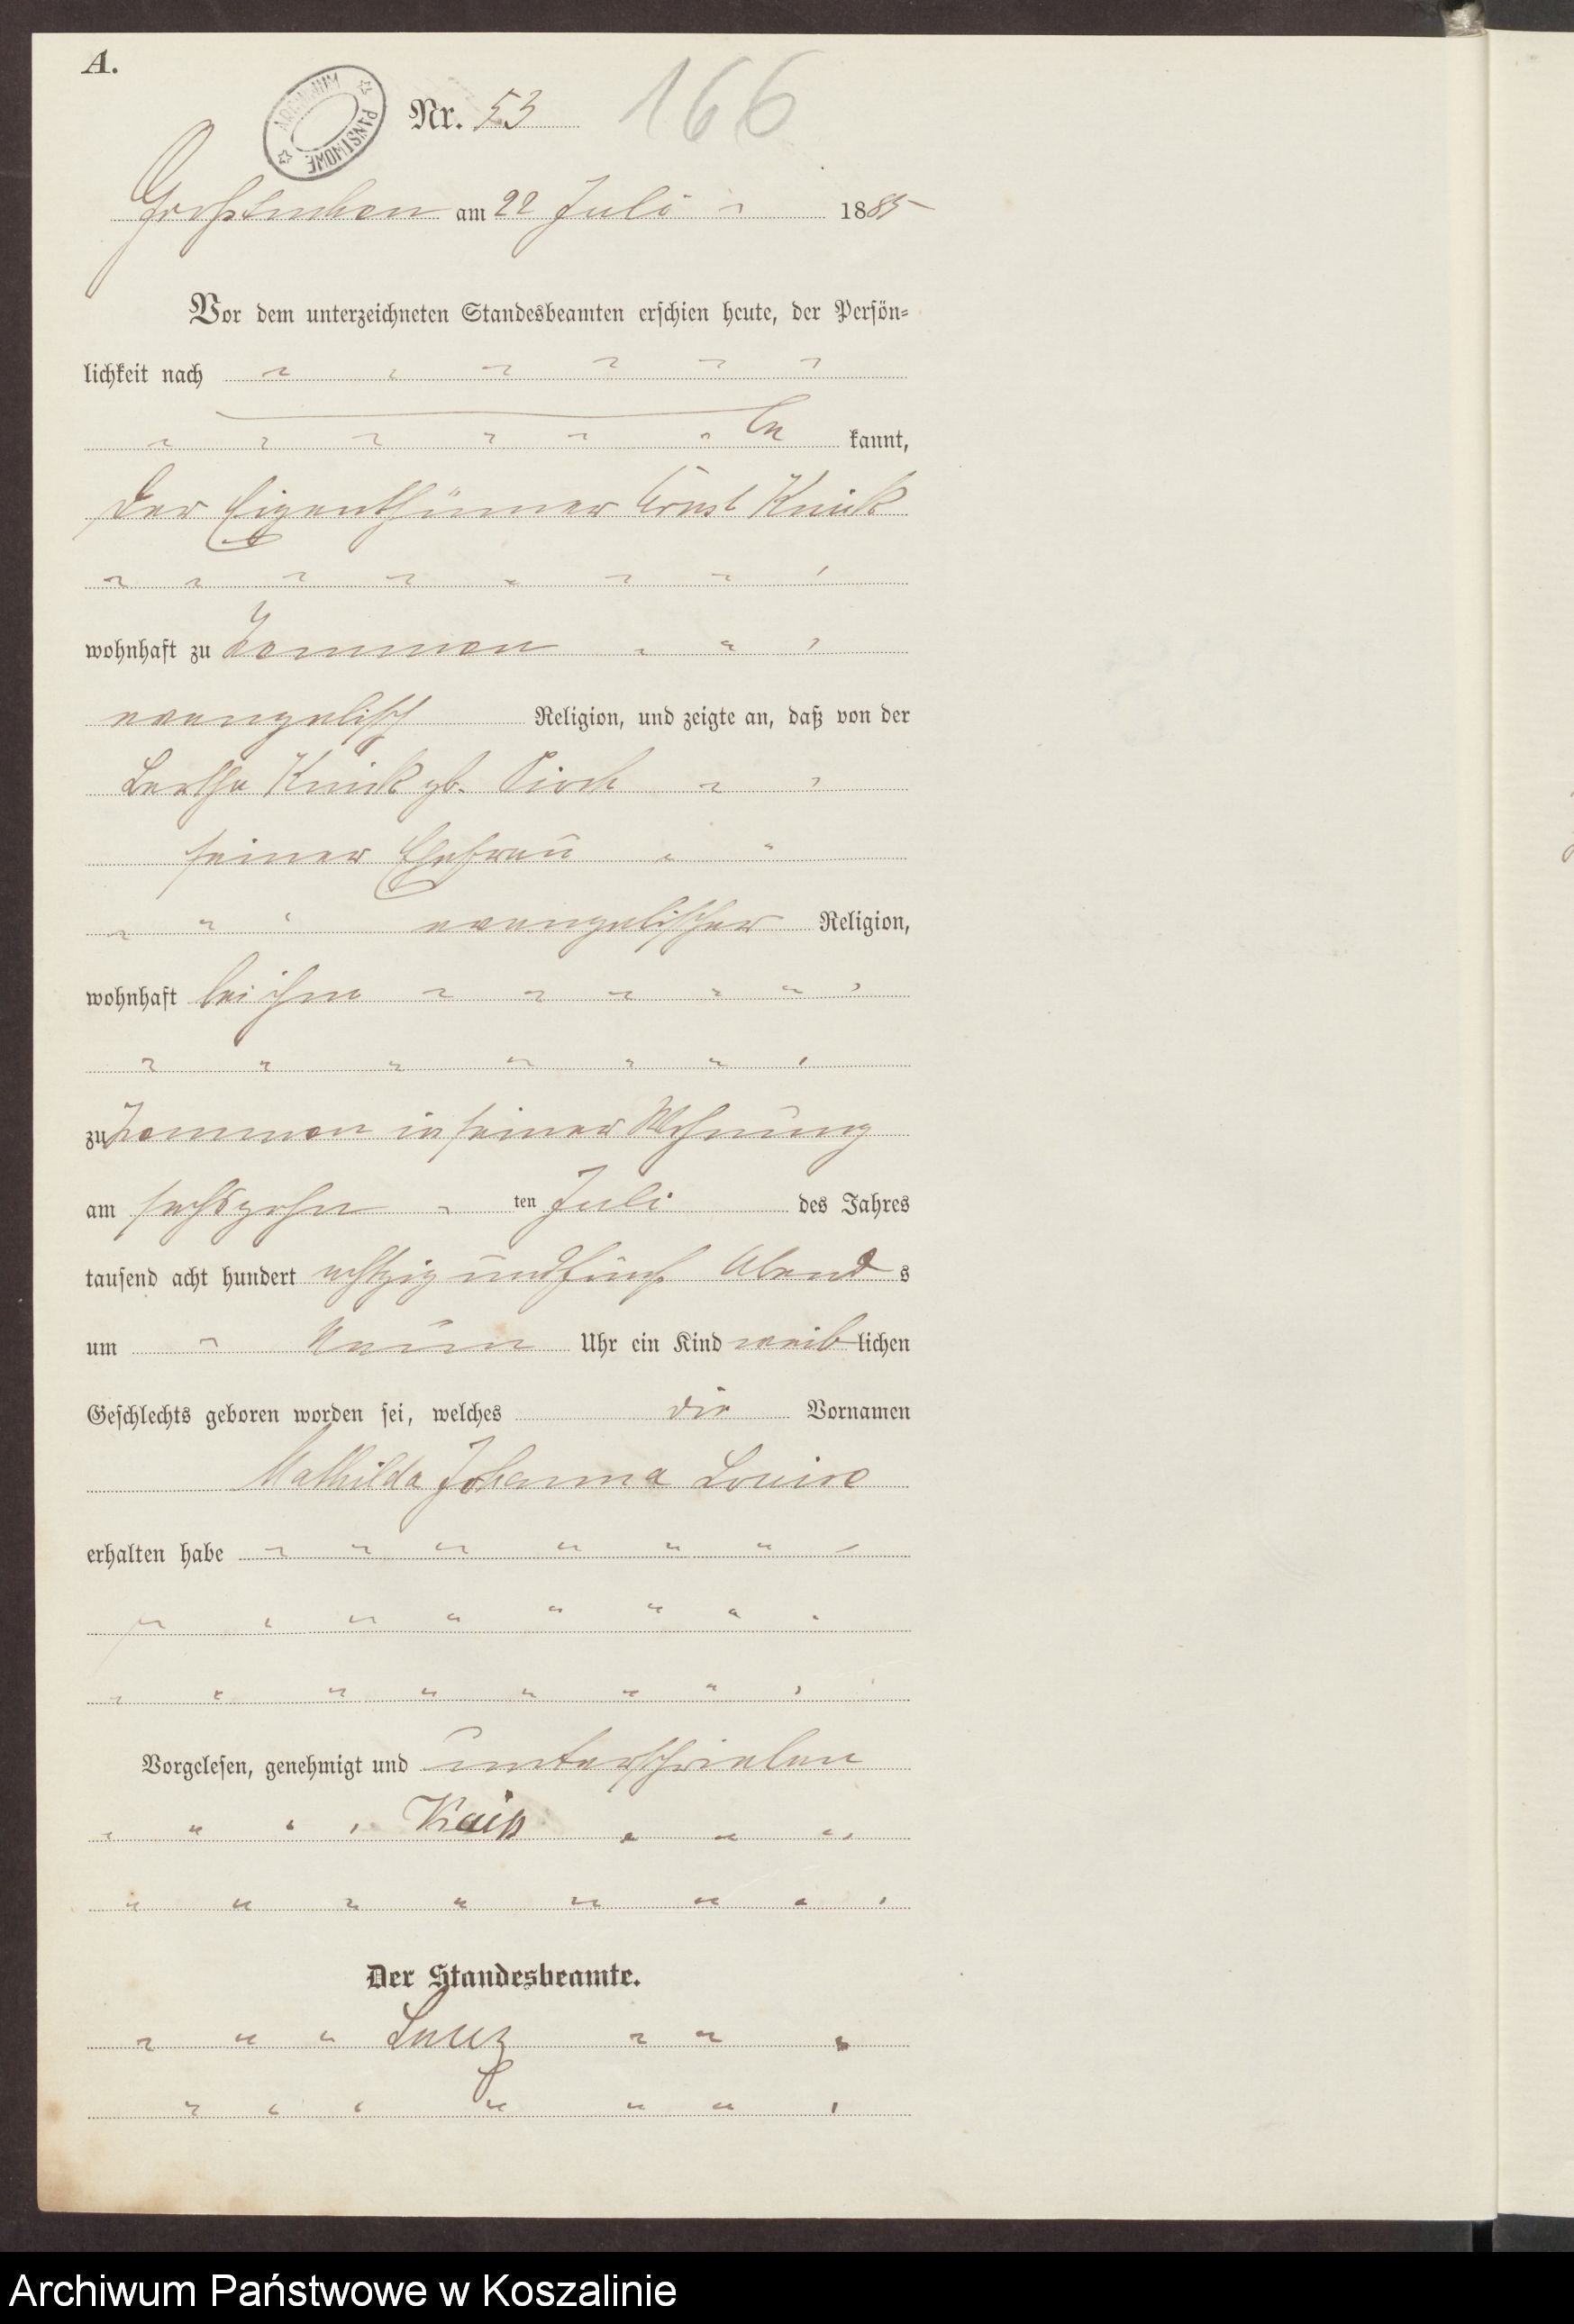 A.
ARCHIWUM PAŃSTWOWE
Nr. 53
166
Großtuchen am 22 Juli 1885
Vor dem unterzeichneten Standesbeamten erschien heute, der Persön-
lichkeit nach
be kannt,
der Eigenthümer Ernst
wohnhaft zu
evangelisch Religion, und zeigte an, daß von der
Bertha geb.
seiner Ehefrau
evangelischer Religion,
wohnhaft bei ihm
zu in seiner Wohnung
am sechszehn ten Juli des Jahres
tausend acht hundert achtzig und fünf Abend s
um Neun Uhr ein Kind weiblichen
Geschlechts geboren worden sei, welches die Vornamen
Mathilda Johanna Louise
erhalten habe
Vorgelesen, genehmigt und unterschrieben
Der Standesbeamte.
Archiwum Państwowe w Koszalinie